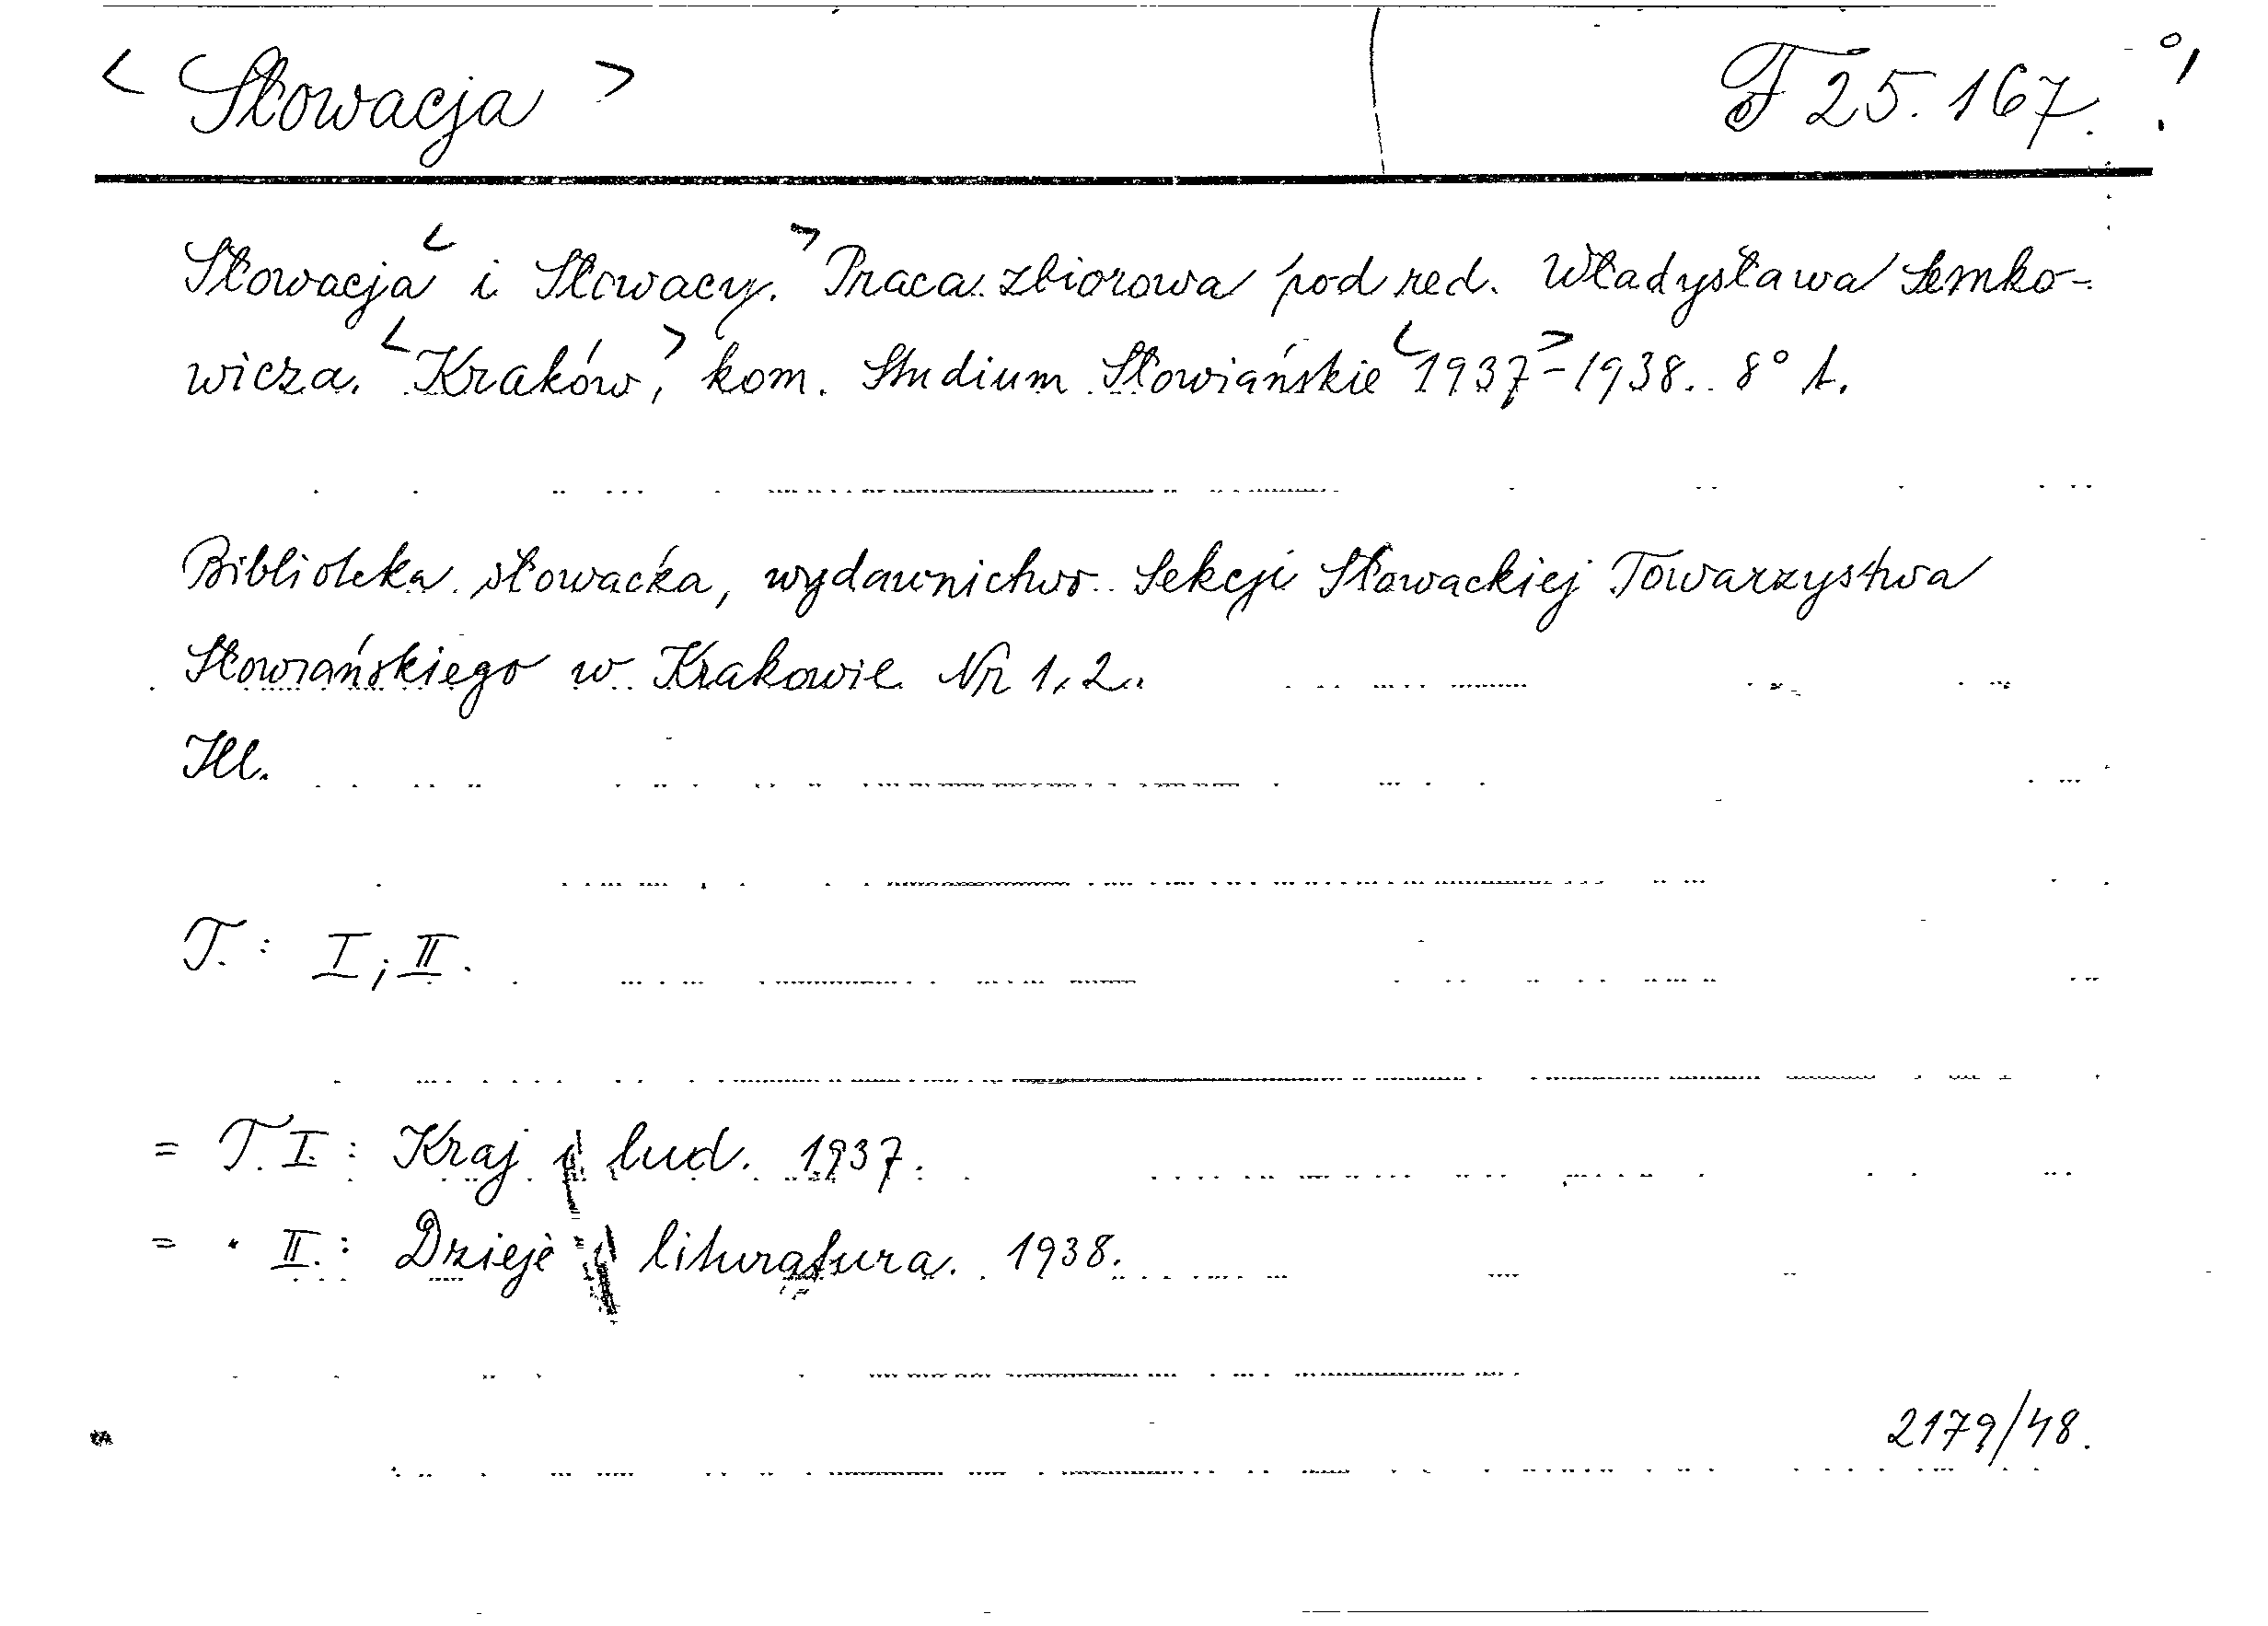 < Słowacja > F 25.167.
Słowacja < i Słowacy. > Praca zbiorowa pod red. Władysława Semko-
wicza. < Kraków, > kom. Studium Słowiańskie < 1937 > - 1938. 8° t.
Biblioteka słowacka, wydawnictwo Sekcji Słowackiej Towarzystwa
Słowiańskiego w Krakowie Nr 1, 2.
Ill.
T. : I ; II.
= T. I : Kraj i lud. 1937.
= " II. : Dzieje i literatura. 1938.
2179/48.